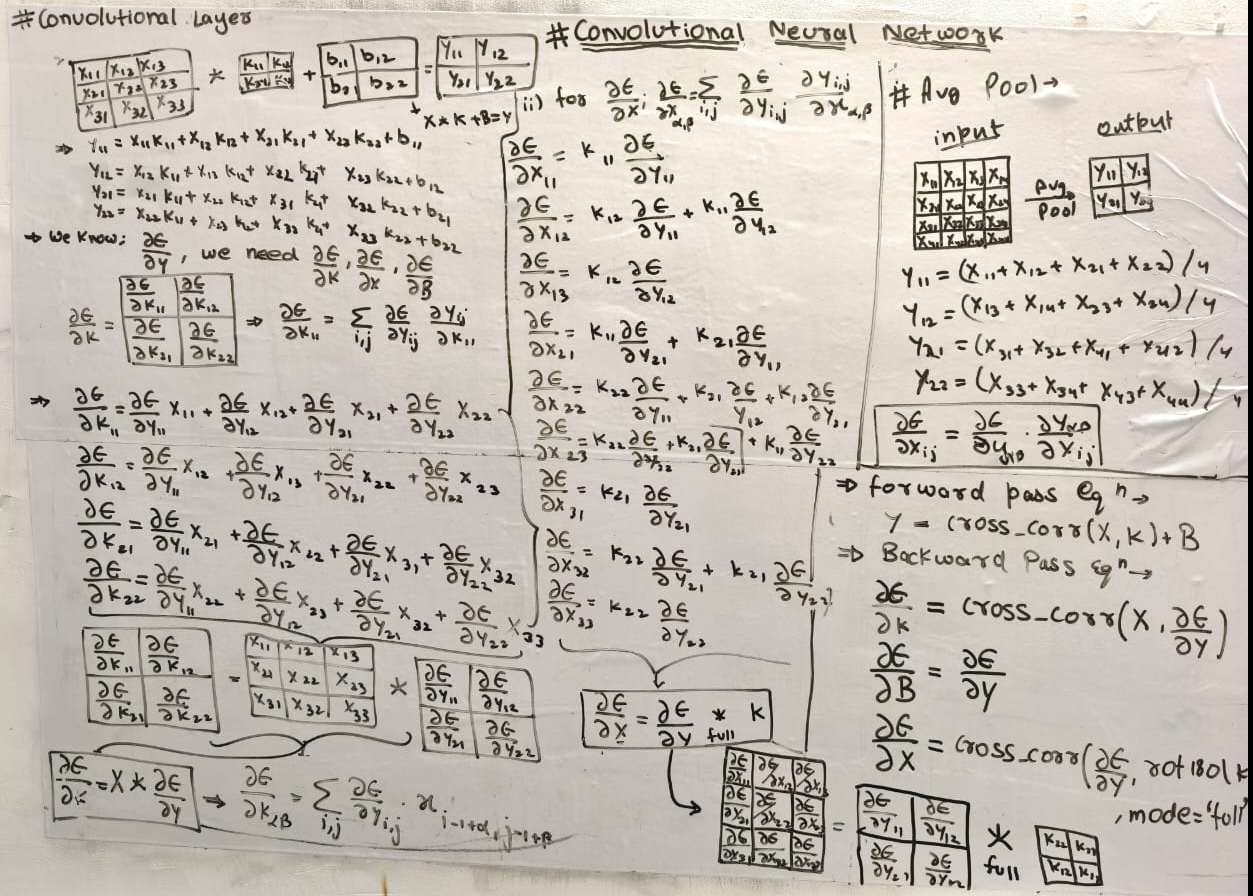 #Convolutional Layer
# Convolutional Neural Network
X11 X12 X13
X21 X22 X23
X31 X32 X33
*
K11 K12
K21 K22
+
b11 b12
b21 b22
=
Y11 Y12
Y21 Y22
X*K+B=Y
⇒ Y11 = X11K11+X12K12+X21K21+X22K22+b11
Y12 = X12K11+X13K12+X22K21+X23K22+b12
Y21 = X21K11+X22K12+X31K21+X32K22+b21
Y22 = X22K11+X23K12+X32K21+X33K22+b22
→ we know: ∂E/∂Y, we need ∂E/∂K, ∂E/∂X, ∂E/∂B
∂E/∂K =
∂E/∂K11 ∂E/∂K12
∂E/∂K21 ∂E/∂K22
⇒ ∂E/∂K11 = Σi,j ∂E/∂Yij ∂Yij/∂K11
⇒ ∂E/∂K11 = ∂E/∂Y11 X11 + ∂E/∂Y12 X12 + ∂E/∂Y21 X21 + ∂E/∂Y22 X22
∂E/∂K12 = ∂E/∂Y11 X12 + ∂E/∂Y12 X13 + ∂E/∂Y21 X22 + ∂E/∂Y22 X23
∂E/∂K21 = ∂E/∂Y11 X21 + ∂E/∂Y12 X22 + ∂E/∂Y21 X31 + ∂E/∂Y22 X32
∂E/∂K22 = ∂E/∂Y11 X22 + ∂E/∂Y12 X23 + ∂E/∂Y21 X32 + ∂E/∂Y22 X33
∂E/∂K11 ∂E/∂K12
∂E/∂K21 ∂E/∂K22
=
X11 X12 X13
X21 X22 X23
X31 X32 X33
*
∂E/∂Y11 ∂E/∂Y12
∂E/∂Y21 ∂E/∂Y22
∂E/∂K = X * ∂E/∂Y → ∂E/∂Kαβ = Σi,j ∂E/∂Yi,j · x i-1+α, j-1+β
ii) for ∂E/∂X; ∂E/∂Xα,β = Σi,j ∂E/∂Yi,j ∂Yi,j/∂xα,β
∂E/∂X11 = K11 ∂E/∂Y11
∂E/∂X12 = K12 ∂E/∂Y11 + K11 ∂E/∂Y12
∂E/∂X13 = K12 ∂E/∂Y12
∂E/∂X21 = K11 ∂E/∂Y21 + K21 ∂E/∂Y11
∂E/∂X22 = K22 ∂E/∂Y11 + K21 ∂E/Y12 + K12 ∂E/∂Y21
∂E/∂X23 = K22 ∂E/∂Y12 + K21 ∂E/∂Y21 + K11 ∂E/∂Y22
∂E/∂X31 = K21 ∂E/∂Y21
∂E/∂X32 = K22 ∂E/∂Y21 + K21 ∂E/∂Y22
∂E/∂X33 = K22 ∂E/∂Y22
∂E/∂X = ∂E/∂Y * full K
∂E/∂X11 ∂E/∂X12 ∂E/∂X13
∂E/∂X21 ∂E/∂X22 ∂E/∂X23
∂E/∂X31 ∂E/∂X32 ∂E/∂X33
=
∂E/∂Y11 ∂E/∂Y12
∂E/∂Y21 ∂E/∂Y22
* full
K22 K21
K12 K11
# Avg Pool→
input output
X11 X12 X13 X14
X21 X22 X23 X24
X31 X32 X33 X34
X41 X42 X43 X44
Avg
Pool
Y11 Y12
Y21 Y22
Y11 = (X11+X12+X21+X22)/4
Y12 = (X13+X14+X23+X24)/4
Y21 = (X31+X32+X41+X42)/4
Y22 = (X33+X34+X43+X44)/4
∂E/∂Xij = ∂E/∂Yαβ · ∂Yαβ/∂Xij
⇒ forward pass eqn→
Y = cross_corr(X,K)+B
⇒ Backward Pass eqn→
∂E/∂K = cross_corr(X, ∂E/∂Y)
∂E/∂B = ∂E/∂Y
∂E/∂X = cross_corr(∂E/∂Y, rot180(K
, mode='full'